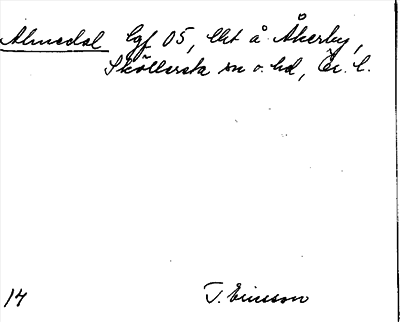 Almsdal lgf 05, lht å Åkerby,
Sköllersta sn o. hd, Ör. l.
14 T. Ericsson